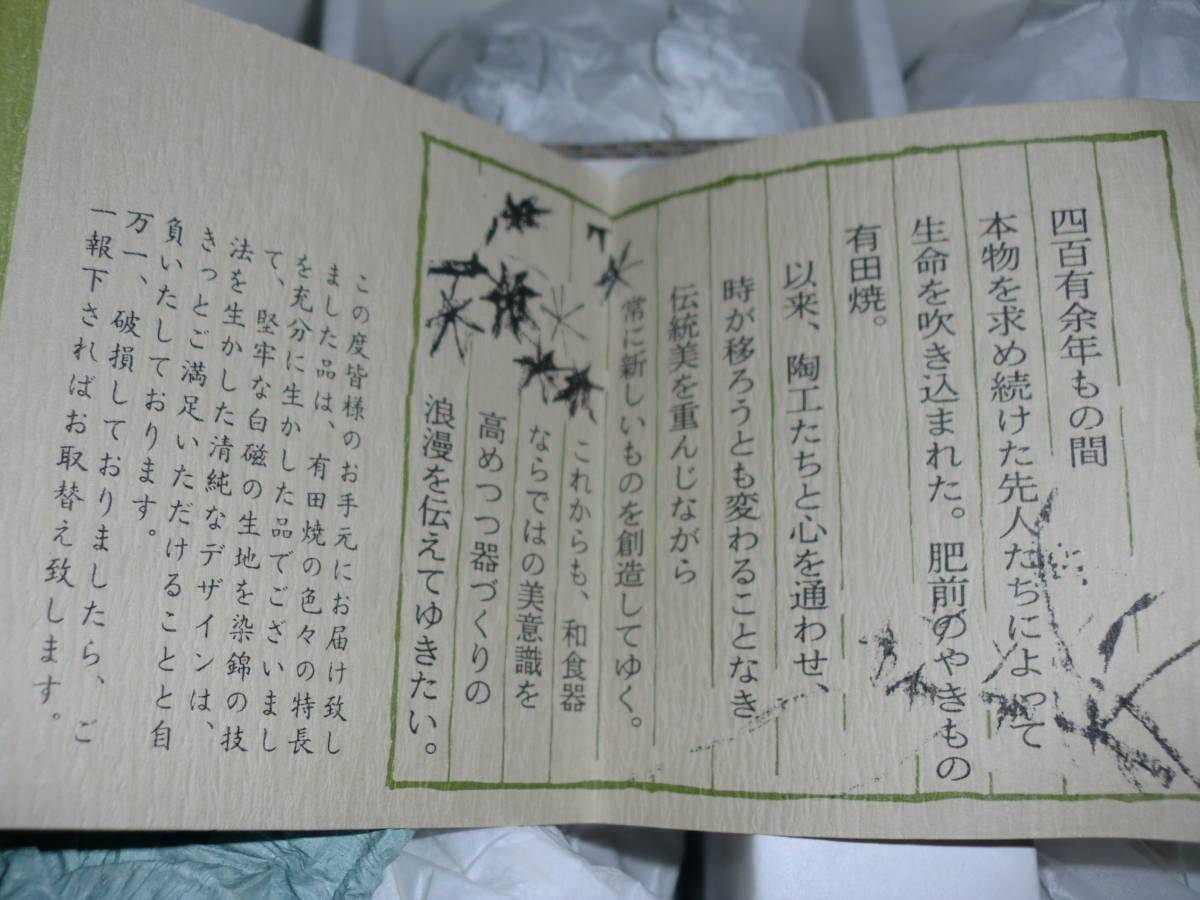 四百有余年もの間
本物を求め続けた先人たちによって
生命を吹き込まれた。肥前のやきもの
有田焼。
以来、陶工たちと心を通わせ、
時が移ろうとも変わることなき
伝統美を重んじながら
常に新しいものを創造してゆく。
これからも、和食器
ならではの美意識を
高めつつ器づくりの
浪漫を伝えてゆきたい。
この度皆様のお手元にお届け致し
ました品は、有田焼の色々の特長
を充分に生かした品でございまし
て、堅牢な白磁の生地を染錦の技
法を生かした清純なデザインは、
きっとご満足いただけることと自
負いたしております。
万一、破損しておりましたら、ご
一報下さればお取替え致します。